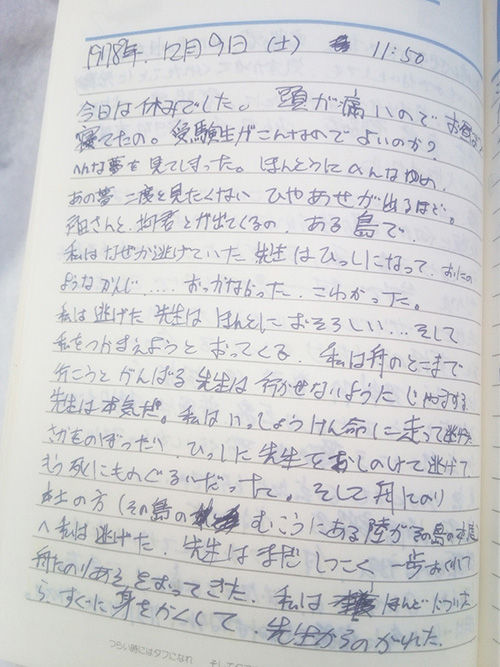 1978年.12月9日 (土) 11:50
今日は休みでした。頭が痛いので お昼まで
寝てたの。受験生がこんなのでよいのか?
へんな夢を見てしまった。ほんとうにへんなゆめ。
あの夢 二度と見たくない ひやあせが出るほど。
さんと、君とが出てくるの、ある島で.
私はなぜか逃げていた 先生はひっしになって、おにの
ようなかんじ.... おっかなかった.こわかった。
私は逃げた 先生は ほんとにおそろしい...そして
私をつかまえようとおってくる. 私は舟のとこまで
行こうとがんばる 先生は行かせないように じゃまする
先生は本気だ。私はいっしょうけん命に走って逃げ
さかをのぼったり、ひっしに先生をおしのけて逃げて
もう死にものぐるいだった。そして舟にのり
本土の方(その島のむこうにある陸がその島の本島)
へ私は逃げた.先生はまだしつこく 一歩おくれて
舟にのりあとをおってきた.私はほんどについた
ら、すぐに身をかくして、先生からのがれた.
つらい時にはタフになれ